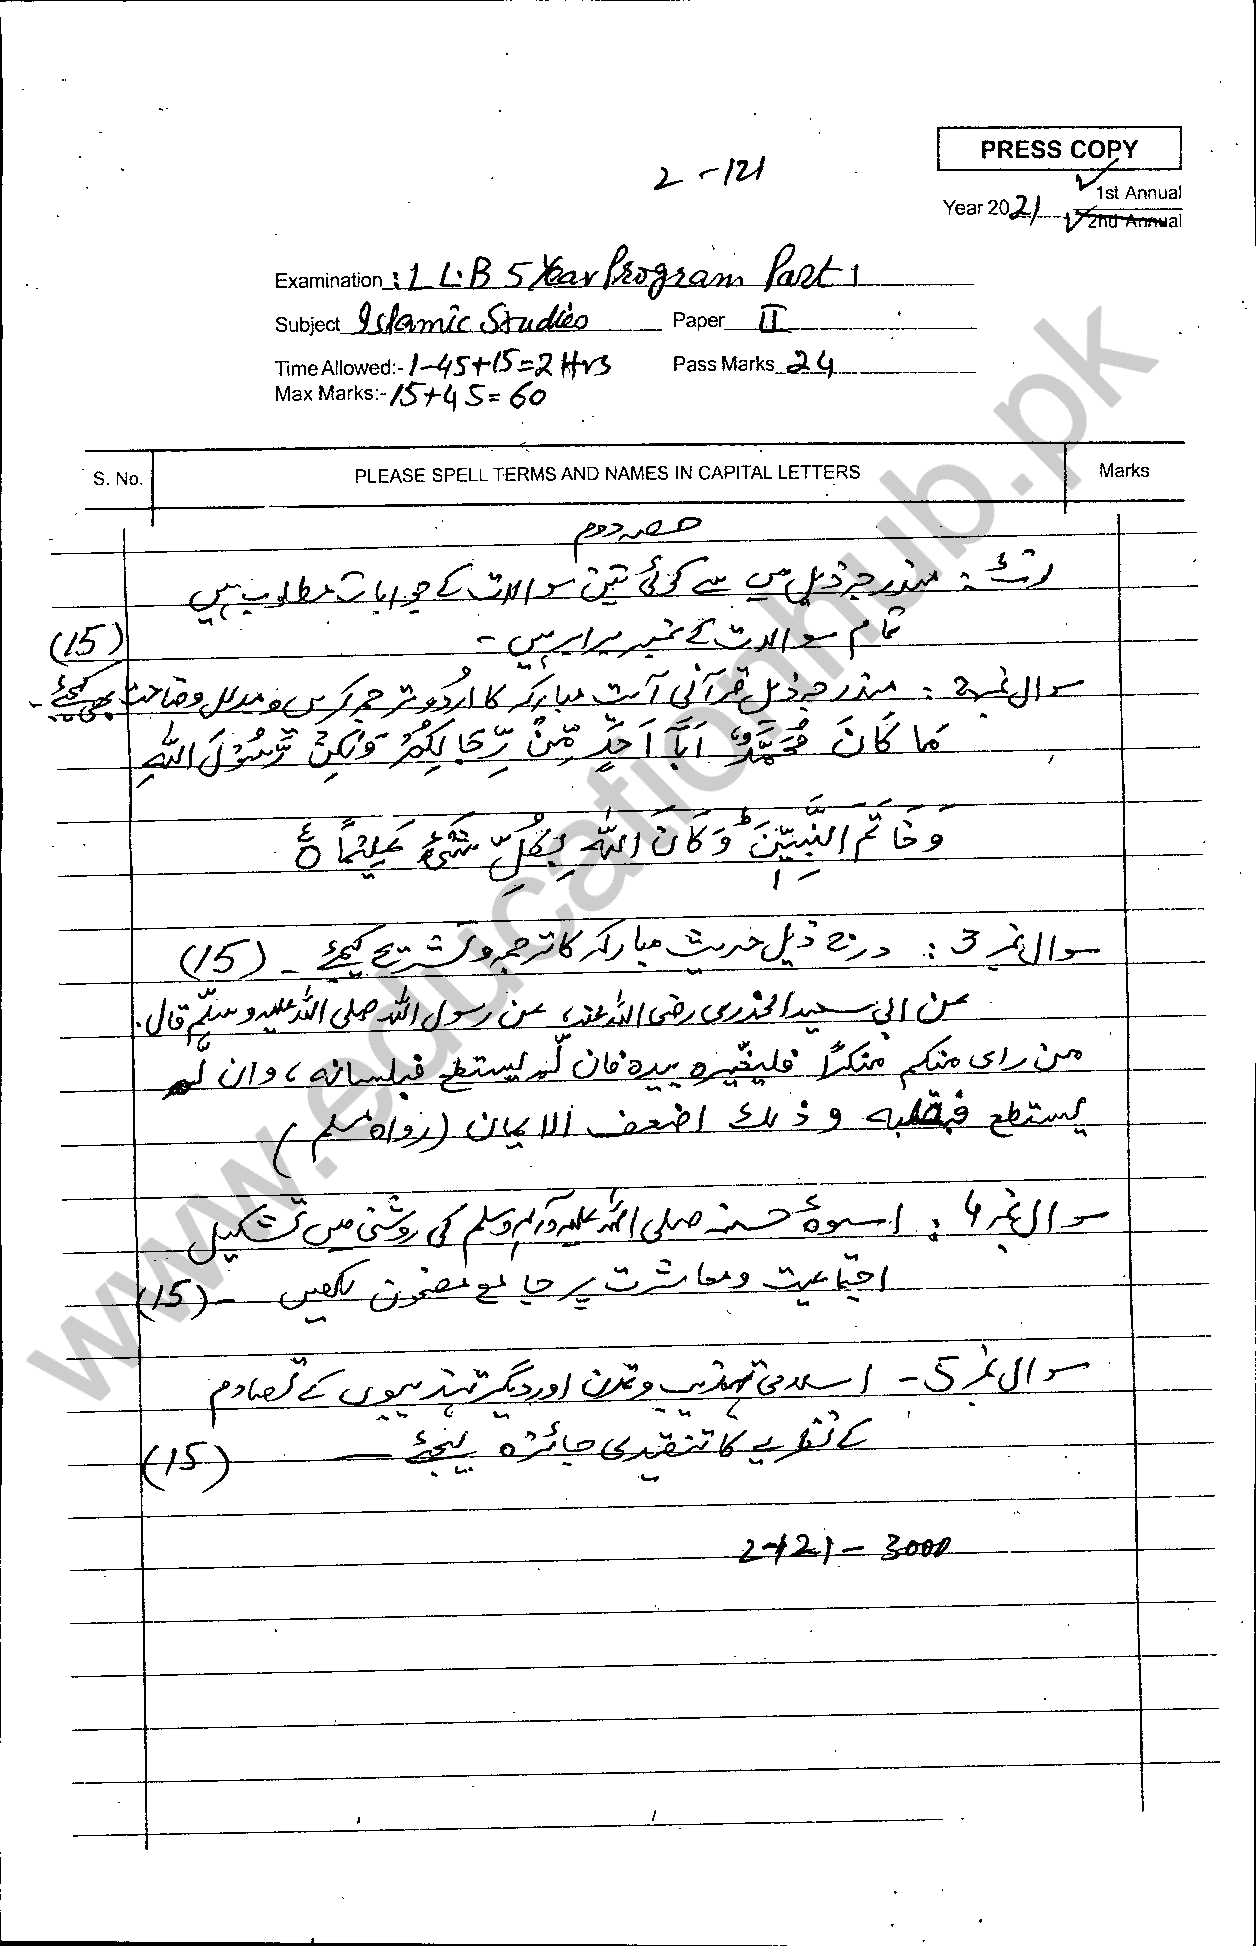 PRESS COPY
2-121
1st Annual
Year 2021 2nd Annual
Examination: LL.B 5 Year Program Part 1
Subject Islamic Studies Paper II
Time Allowed:- 1-45+15=2 Hrs Pass Marks 24
Max Marks:- 15+45=60
S. No. PLEASE SPELL TERMS AND NAMES IN CAPITAL LETTERS Marks
حصہ دوم
نوٹ: مندرجہ ذیل میں سے کوئی تین سوالات کے جوابات مطلوب ہیں
تمام سوالات کے نمبر برابر ہیں - (15)
سوال نمبر 2: مندرجہ ذیل قرآنی آیت مبارکہ کا اردو ترجمہ کریں و مدلل وضاحت بھی کیجئے -
مَا كَانَ مُحَمَّدٌ اَبَآ اَحَدٍ مِّنْ رِّجَالِكُمْ وَلٰكِنْ رَّسُوْلَ اللّٰهِ
وَخَاتَمَ النَّبِيّٖنَ ؕ وَكَانَ اللّٰهُ بِكُلِّ شَيْءٍ عَلِيْمًا ۝
سوال نمبر 3: درج ذیل حدیث مبارکہ کا ترجمہ و تشریح کیجئے - (15)
عن ابی سعید الخدری رضی اللہ عنہ، عن رسول اللہ صلی اللہ علیہ وسلم قال:
من رای منکم منکرًا فلیغیرہ بیدہ فان لم یستطع فبلسانہ، وان لم
یستطع فبقلبہ و ذلک اضعف الایمان (رواہ مسلم)
سوال نمبر 4: اسوۂ حسنہ صلی اللہ علیہ وآلہ وسلم کی روشنی میں تشکیل
اجتماعیت و معاشرت پر جامع مضمون لکھیں - (15)
سوال نمبر 5- اسلامی تہذیب و تمدن اور دیگر تہذیبوں کے تصادم
کے نظریے کا تنقیدی جائزہ لیجئے — (15)
2-121-3000
www.educationhub.pk